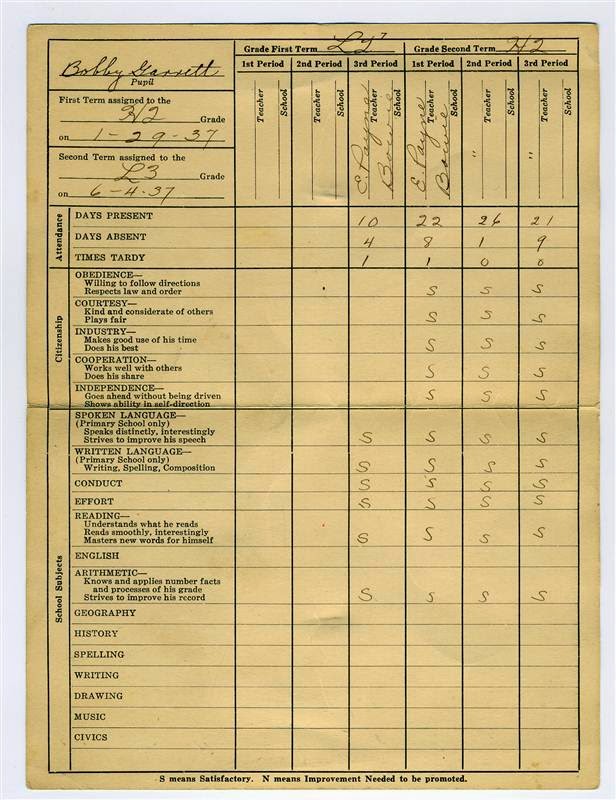 Grade First Term L2 Grade Second Term H2
Bobby Garrett
Pupil
1st Period 2nd Period 3rd Period 1st Period 2nd Period 3rd Period
First Term assigned to the
H2 Grade
on 1-29-37
Second Term assigned to the
L3 Grade
on 6-4-37
Teacher School Teacher School Teacher School Teacher School Teacher School Teacher School
E. Payne Bowie E. Payne Bowie " "
Attendance
DAYS PRESENT 10 22 26 21
DAYS ABSENT 4 8 1 9
TIMES TARDY 1 1 0 0
Citizenship
OBEDIENCE—
Willing to follow directions
Respects law and order S S S
COURTESY—
Kind and considerate of others
Plays fair S S S
INDUSTRY—
Makes good use of his time
Does his best S S S
COOPERATION—
Works well with others
Does his share S S S
INDEPENDENCE—
Goes ahead without being driven
Shows ability in self-direction S S S
School Subjects
SPOKEN LANGUAGE—
(Primary School only)
Speaks distinctly, interestingly
Strives to improve his speech S S S S
WRITTEN LANGUAGE—
(Primary School only)
Writing, Spelling, Composition S S S S
CONDUCT S S S S
EFFORT S S S S
READING—
Understands what he reads
Reads smoothly, interestingly
Masters new words for himself S S S S
ENGLISH
ARITHMETIC—
Knows and applies number facts
and processes of his grade
Strives to improve his record S S S S
GEOGRAPHY
HISTORY
SPELLING
WRITING
DRAWING
MUSIC
CIVICS
S means Satisfactory. N means Improvement Needed to be promoted.